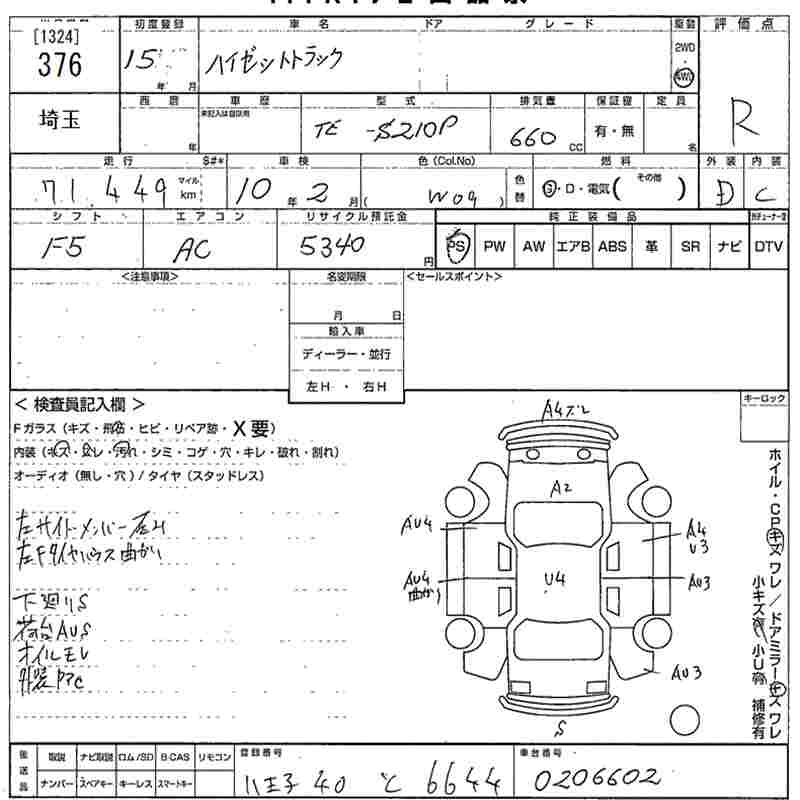 [1324]
376
埼玉
初度登録 車名 ドア グレード 駆動 評価点
15 年 月 ハイゼットトラック 2WD 4WD R
西暦 車歴 型式 排気量 保証書 定員
年 未記入は自家用 TE -S210P 660 cc 有・無 名
走行 $#* 車検 色(Col.No) 燃料 外装 内装
71,449 マイル km 10年2月( W09 ) 色替 G・D・電気( その他 ) D C
シフト エアコン リサイクル預託金 純正装備品
F5 AC 5340円 PS PW AW エアB ABS 革 SR ナビ DTV
<注意事項> 名変期限 <セールスポイント>
月 日
輸入車
ディーラー・並行
左H ・ 右H
< 検査員記入欄 > キーロック
Fガラス (キズ・飛石・ヒビ・リペア跡・X要)
内装 (キズ・ヨレ・汚れ・シミ・コゲ・穴・キレ・破れ・割れ)
オーディオ (無し・穴) / タイヤ (スタッドレス)
左サイドメンバー
左Fタイヤハウス曲がり
下廻りS
荷台AUS
オイルモレ
A4ズレ
A2
AU4
A4
U3
AU4
曲がり
U4
AU3
AU3
S
ホイル・CPキズワレ/ドアミラーキズワレ
小キズ有/小U有 補修有
後送品 取説 ナビ取説 ロム/SD B-CAS リモコン 登録番号 車台番号
ナンバー スペアキー キーレス スマートキー 八王子 40 6644 0206602